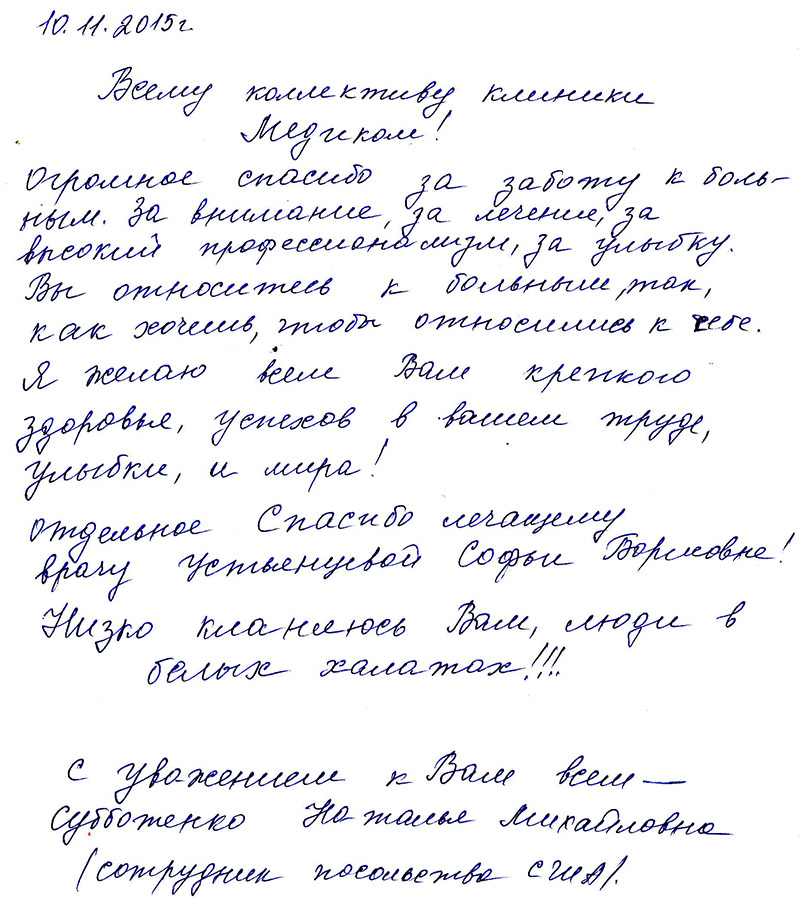 10.11.2015г.
Всему коллективу клиники
Медиком!
Огромное спасибо за заботу к боль-
ным. За внимание, за лечение, за
высокий профессионализм, за улыбку.
Вы относитесь к больным, так,
как хочешь, чтобы относились к тебе.
Я желаю всем Вам крепкого
здоровья, успехов в вашем труде,
улыбки, и мира!
Отдельное Спасибо лечащему
врачу Устьянцевой Софьи Борисовне!
Низко кланяюсь Вам, люди в
белых халатах!!!
С уважением к Вам всем —
Субботенко Наталья Михайловна
(сотрудник посольства США).